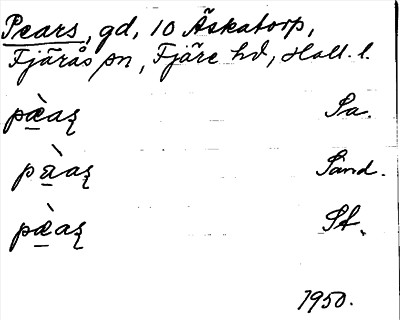 Pears, gd, 10 Äskatorp,
Fjärås sn, Fjäre hd, Hall. l.
pæ̀aʂ Sa.
pàaʂ Sand.
pæ̀aʂ St.
1950.